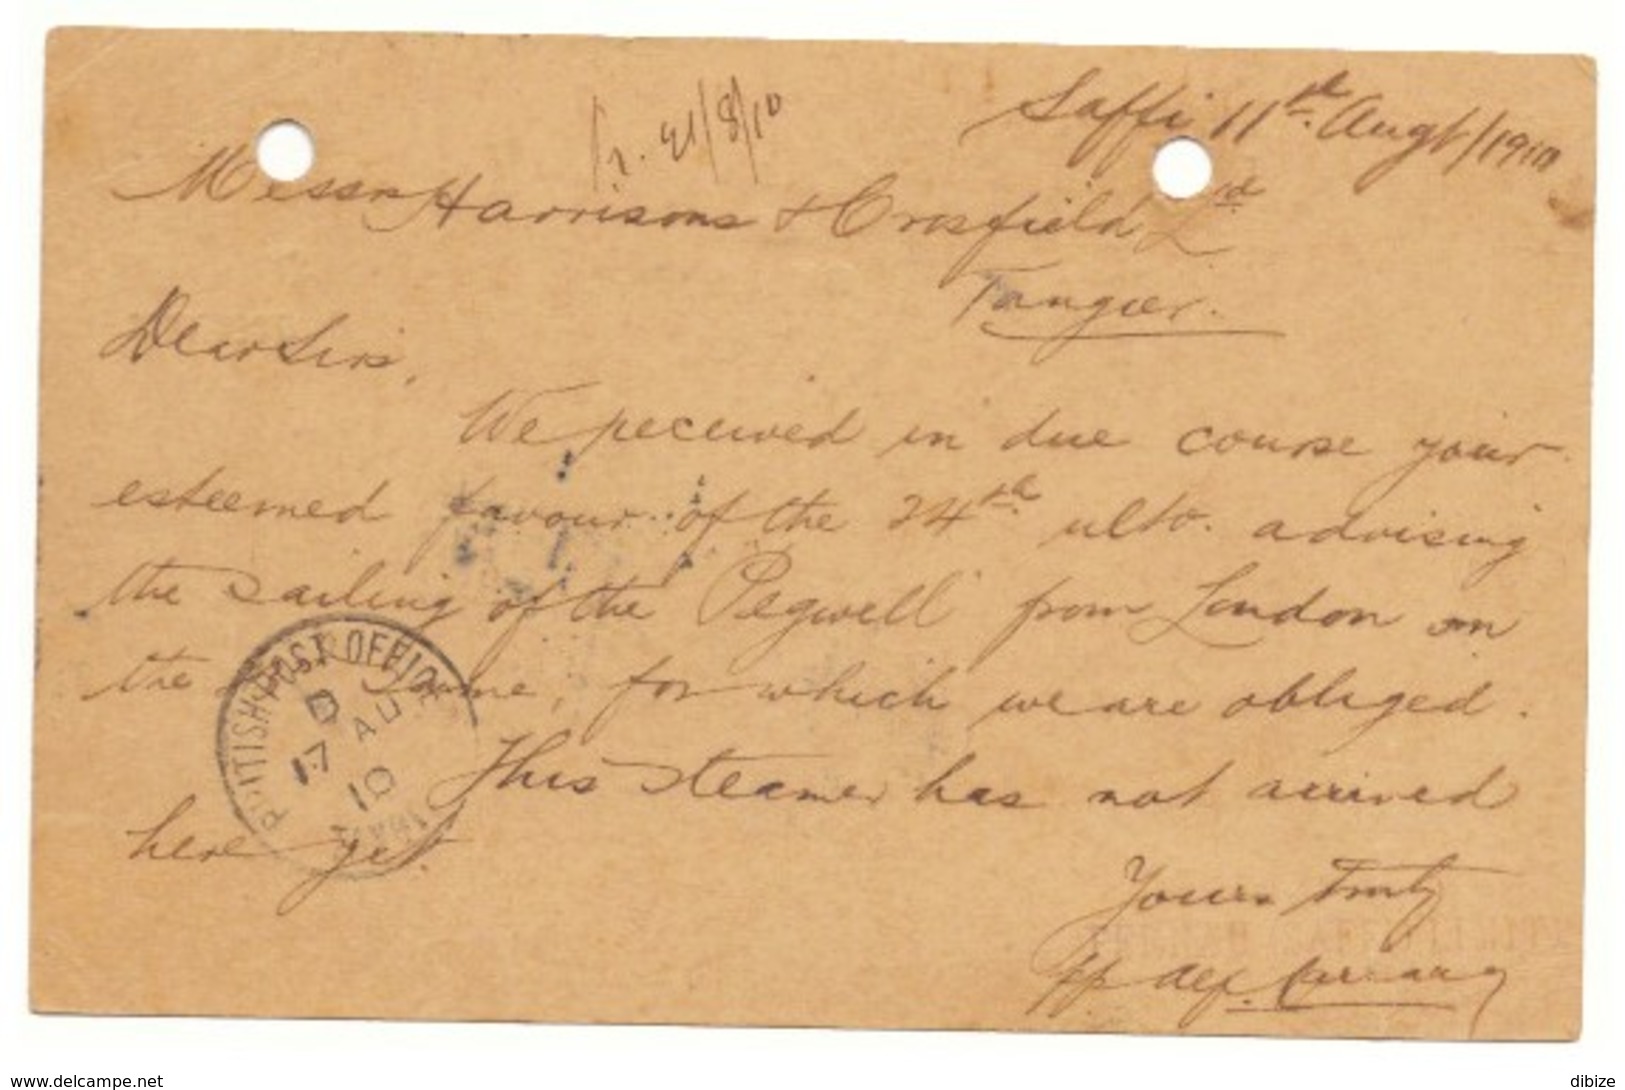 Saffi 11th Augt/1910
21/8/10
Messrs Harrisons & Crosfield Ld
Tangier.
Dear Sirs,
We received in due course your
esteemed favour of the 24th ulto. advising
the sailing of the Pegwell from London on
the same, for which we are obliged.
This steamer has not arrived
here yet.
Yours truly
pp Alf.
BRITISH POST OFFICE
D
17 AU
10
www.delcampe.net
dibize